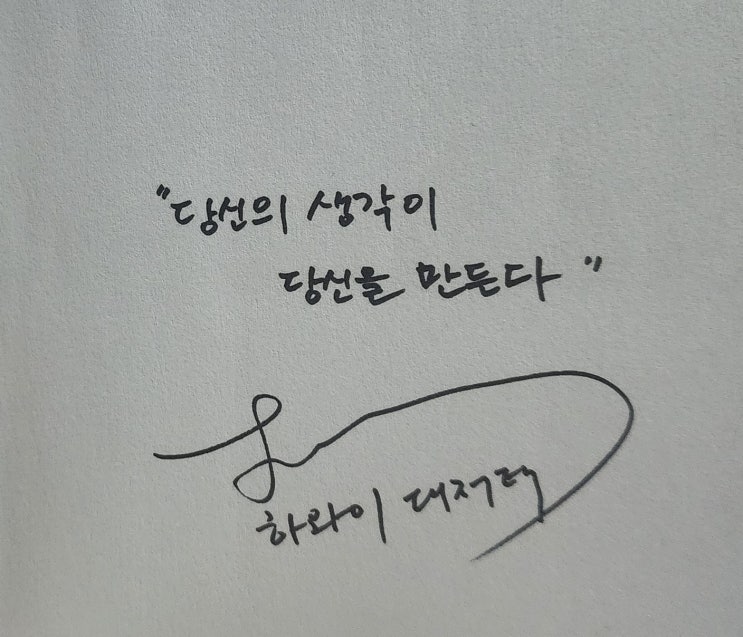 "당신의 생각이
당신을 만든다"
하와이 대저택